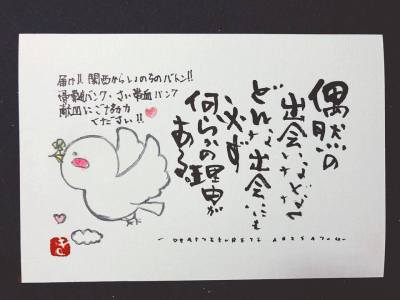 届け!! 関西からいのちのバトン!!
骨髄バンク・さい帯血バンク
献血にご協力
ください!!
偶然の
出会いなどなく
どんな出会いにも
必ず
何らかの理由が
ある